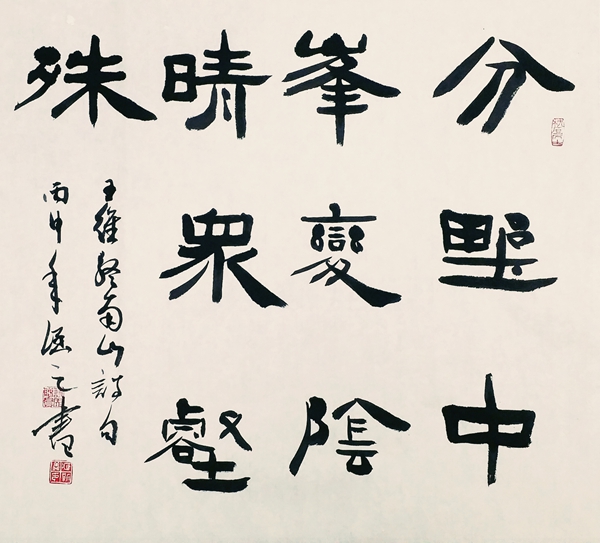 分野中
峯變陰
晴眾壑
殊
王維終南山詩句
丙申年之書